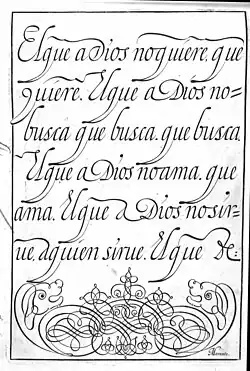 El que a Dios no quiere, que
quiere. El que a Dios no-
busca que busca. que busca
El que a Dios no ama. que
ama. El que a Dios no sir-
ue, a quien sirue. El que &c:
Morante.